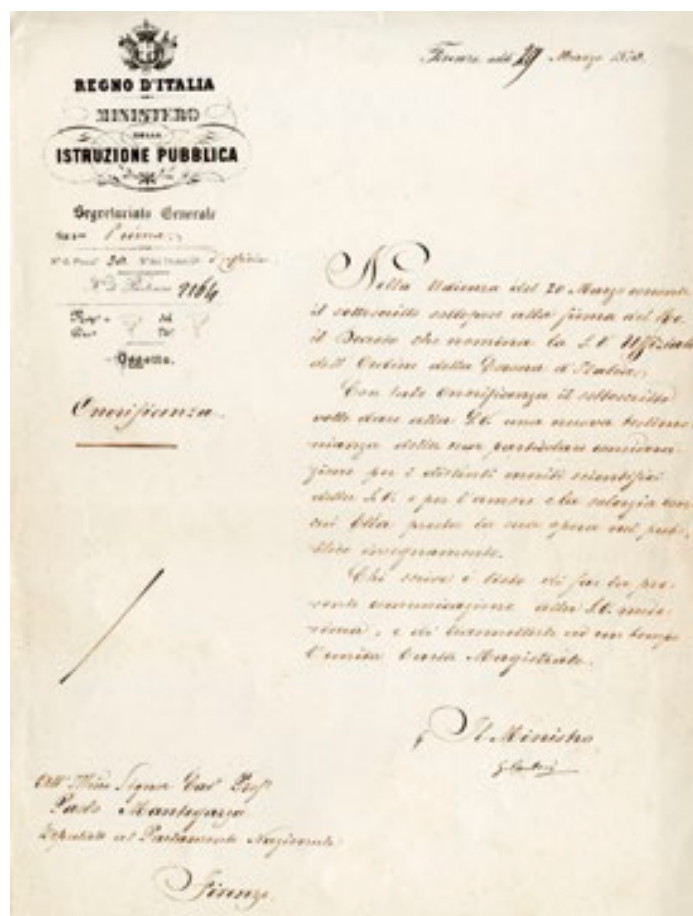 Firenze addì 29 Marzo 1870.
REGNO D'ITALIA
MINISTERO
DELLA
ISTRUZIONE PUBBLICA
Segretariato Generale
Prima
N° di Posiz. 30.
9164
Oggetto.
Onorificenza.
Nella Udienza del 20 Marzo corrente
il sottoscritto sottopose alla firma del Re
il Decreto che nomina la S.V. Uffiziale
dell'Ordine della Corona d'Italia.
Con tale Onorificenza il sottoscritto
volle dare alla S.V. una nuova testimo-
nianza della sua particolare considera-
zione per i distinti meriti scientifici
della S.V. e per l'amore e la solerzia con
cui Ella presta la sua opera nel pub-
blico insegnamento.
Chi scrive è lieto di far la pre-
sente comunicazione alla S.V. mede-
sima, e di trasmetterle ad un tempo
l'unita Carta Magistrale.
Il Ministro
All' Illmo Signor Cav. Profr
Paolo Mantegazza
Deputato al Parlamento Nazionale
Firenze